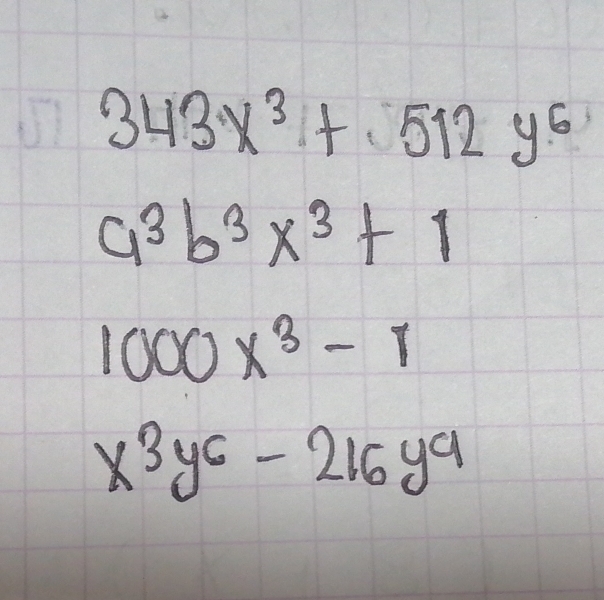 343x³ + 512 y⁶
a³b³x³ + 1
1000x³ - 1
x³y⁶ - 216y⁹